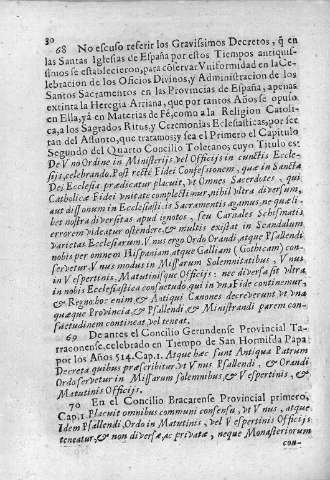 80
68 No escuso referir los Gravissimos Decretos, q̃ en
las Santas Iglesias de España por estos Tiempos antiquis-
simos se establecieron, para cõservar Vniformidad en la Ce-
lebracion de los Oficios Divinos, y Administracion de los
Santos Sacramentos en las Provincias de España, apenas
extinta la Heregia Arriana, que por tantos Años se opuso
en Ella, yà en Materias de Fè, como a la Religion Catoli-
ca, a los Sagrados Ritus, y Ceremonias Eclesiasticas, por ser
tan del Assunto, que tratamos; y sea el Primero el Capitulo
Segundo del Quarto Concilio Toletano, cuyo Titulo es:
De Vno Ordine in Ministerijs, vel Officijs in cunctis Eccle-
sijs, celebrando. Post rectæ Fidei Confessionem, quæ in Sancta
Dei Ecclesia prædicatur placuit, vt Omnes Sacerdotes, qui
Catholicæ Fidei vnitate complectimur, nihil vltra diversum,
aut dissonum in Ecclesiasticis Sacramentis agamus, ne quæli-
bet nostra diversitas apud ignotos, seu Carnales Schismatis
errorem videatur ostendere, & multis existat in Scandalum
varietas Ecclesiarum. Vnus ergo Ordo Orandi, atque Psallendi
nobis per omnem Hispaniam, atque Galliam (Gothicam) con-
servetur. Vnus modus in Missarum Solemnitatibus, Vnus
in Vespertinis, Matutinisque Officijs: nec diversa sit vltra
in nobis Ecclesiastica consuetudo, qui in vna Fide continemur,
& Regno: hoc enim & Antiqui Canones decreverunt vt vna
quæque Provincia, & Psallendi, & Ministrandi parem con-
suetudinem contineat, vel teneat.
69 De antes el Concilio Gerundense Provincial Ta-
rraconense, celebrado en Tiempo de San Hormisda Papa
por los Años 514. Cap. 1. Atque hæc sunt Antiqua Patrum
Decreta quibus præscribitur, vt Vnus Psallendi, & Orandi
Ordo servetur in Missarum solemnibus, & Vespertinis, &
Matutinis Officijs.
70 En el Concilio Bracarense Provincial primero,
Cap. 1. Placuit omnibus communi consensu, vt Vnus, atque
Idem Psallendi, Ordo in Matutinis, vel Vespertinis Officijs
teneatur, & non diversæ, ac privatæ, neque Monasteriorum
con-